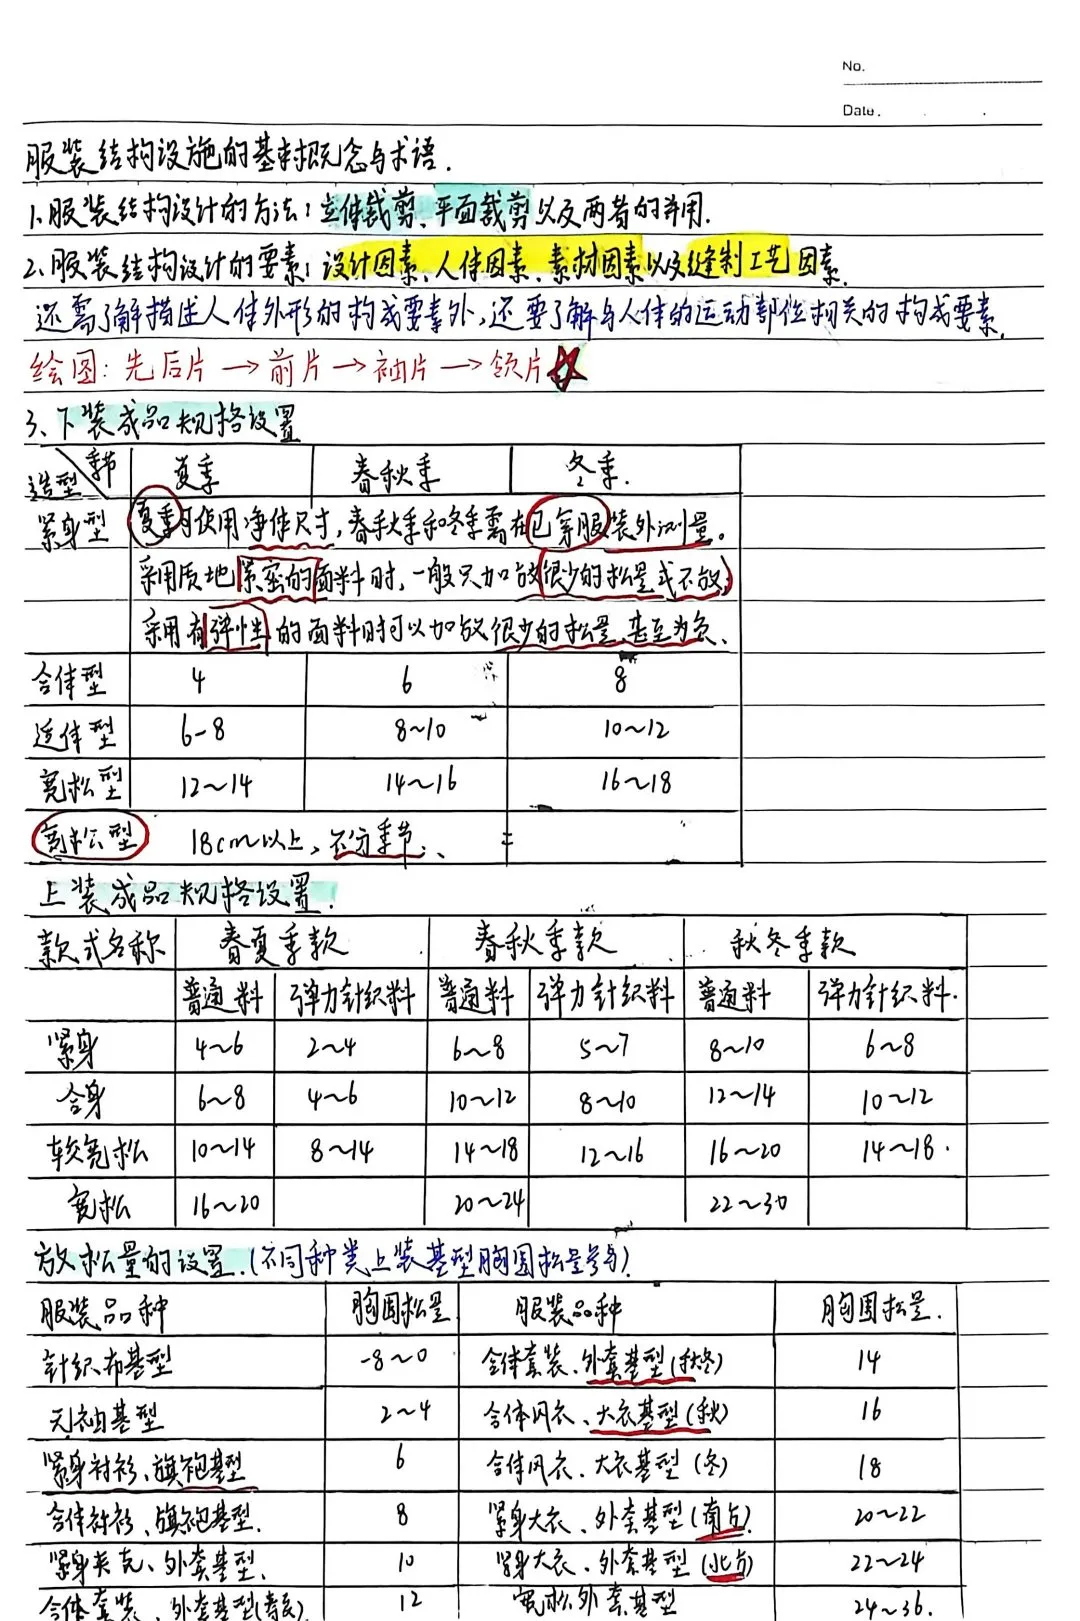 No.
Date.
服装结构设施的基本概念与术语.
1.服装结构设计的方法：立体裁剪、平面裁剪以及两者的并用.
2.服装结构设计的要素：设计因素、人体因素、素材因素以及缝制工艺因素.
还需了解描述人体外形的构成要素外,还要了解与人体的运动部位相关的构成要素.
绘图：先后片→前片→袖片→领片☆
3、下装成品规格设置
造型 季节 夏季 春秋季 冬季.
紧身型 夏季可使用净体尺寸,春秋季和冬季需在已穿服装外测量。
采用质地紧密的面料时,一般只加放很少的松量或不放;
采用有弹性的面料时可以加放很少的松量,甚至为负、
合体型 4 6 8
适体型 6-8 8~10 10~12
宽松型 12~14 14~16 16~18
宽松型 18cm以上,不分季节.
上装成品规格设置.
款式名称 春夏季款 春秋季款 秋冬季款
普通料 弹力针织料 普通料 弹力针织料 普通料 弹力针织料.
紧身 4~6 2~4 6~8 5~7 8~10 6~8
合身 6~8 4~6 10~12 8~10 12~14 10~12
较宽松 10~14 8~14 14~18 12~16 16~20 14~18.
宽松 16~20 20~24 22~30
放松量的设置.(不同种类上装基型胸围松量参考)
服装品种 胸围松量 服装品种 胸围松量.
针织布基型 -8~0 合体套装、外套基型(秋冬) 14
无袖基型 2~4 合体风衣、大衣基型(秋) 16
紧身衬衫、旗袍基型 6 合体风衣、大衣基型(冬) 18
合体衬衫、旗袍基型. 8 紧身大衣、外套基型(南方). 20~22
紧身夹克、外套基型. 10 紧身大衣、外套基型(北方) 22~24
合体套装、外套基型(春夏). 12 宽松外套基型 24~36.